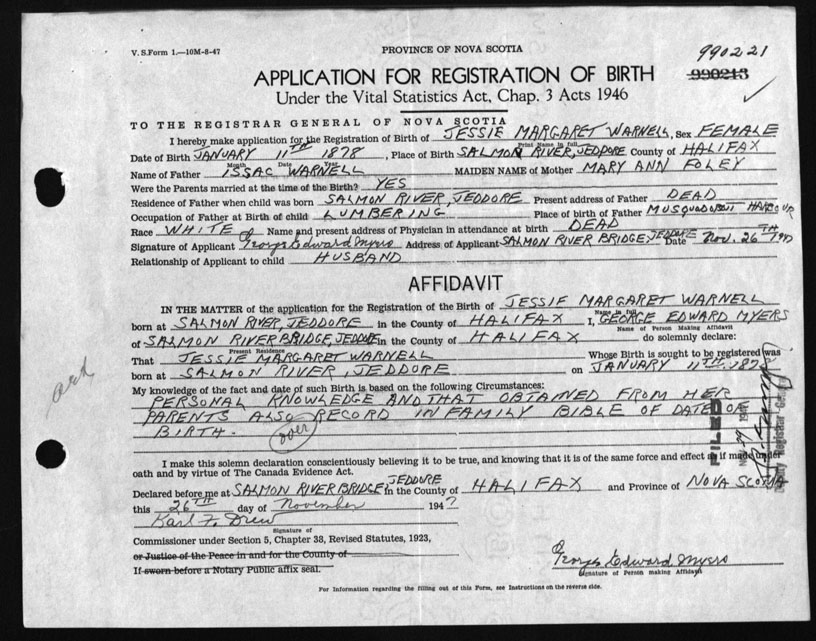 V. S. Form 1.—10M-8-47
PROVINCE OF NOVA SCOTIA
990221
990213
APPLICATION FOR REGISTRATION OF BIRTH
Under the Vital Statistics Act, Chap. 3 Acts 1946
TO THE REGISTRAR GENERAL OF NOVA SCOTIA
I hereby make application for the Registration of Birth of JESSIE MARGARET WARNELL, Sex FEMALE
Print Name in full
Date of Birth JANUARY 11TH 1878, Place of Birth SALMON RIVER, JEDDORE County of HALIFAX
Month Date Year
Name of Father ISSAC WARNELL MAIDEN NAME of Mother MARY ANN FOLEY
Were the Parents married at the time of the Birth? YES
Residence of Father when child was born SALMON RIVER, JEDDORE Present address of Father DEAD
Occupation of Father at Birth of child LUMBERING Place of birth of Father MUSQUODOBOIT HARBOUR
Race WHITE Name and present address of Physician in attendance at birth DEAD
Signature of Applicant George Edward Myers Address of Applicant SALMON RIVER BRIDGE, JEDDORE Date Nov. 26TH 1947
Relationship of Applicant to child HUSBAND
AFFIDAVIT
IN THE MATTER of the application for the Registration of the Birth of JESSIE MARGARET WARNELL
Name in full
born at SALMON RIVER, JEDDORE in the County of HALIFAX I, GEORGE EDWARD MYERS
Name of Person Making Affidavit
of SALMON RIVER BRIDGE, JEDDORE in the County of HALIFAX do solemnly declare:
Present Residence
That JESSIE MARGARET WARNELL Whose Birth is sought to be registered was
born at SALMON RIVER, JEDDORE on JANUARY 11TH 1878
My knowledge of the fact and date of such Birth is based on the following Circumstances:
PERSONAL KNOWLEDGE AND THAT OBTAINED FROM HER
PARENTS ALSO RECORD IN FAMILY BIBLE OF DATE OF
BIRTH.
over
FILED
I make this solemn declaration conscientiously believing it to be true, and knowing that it is of the same force and effect as if made under
oath and by virtue of The Canada Evidence Act.
Declared before me at SALMON RIVER BRIDGE, JEDDORE in the County of HALIFAX and Province of NOVA SCOTIA
this 26TH day of November 1947
Karl F. Drew
Signature of
Commissioner under Section 5, Chapter 38, Revised Statutes, 1923,
or Justice of the Peace in and for the County of
If sworn before a Notary Public affix seal.
George Edward Myers
Signature of Person making Affidavit
For Information regarding the filling out of this Form, see Instructions on the reverse side.